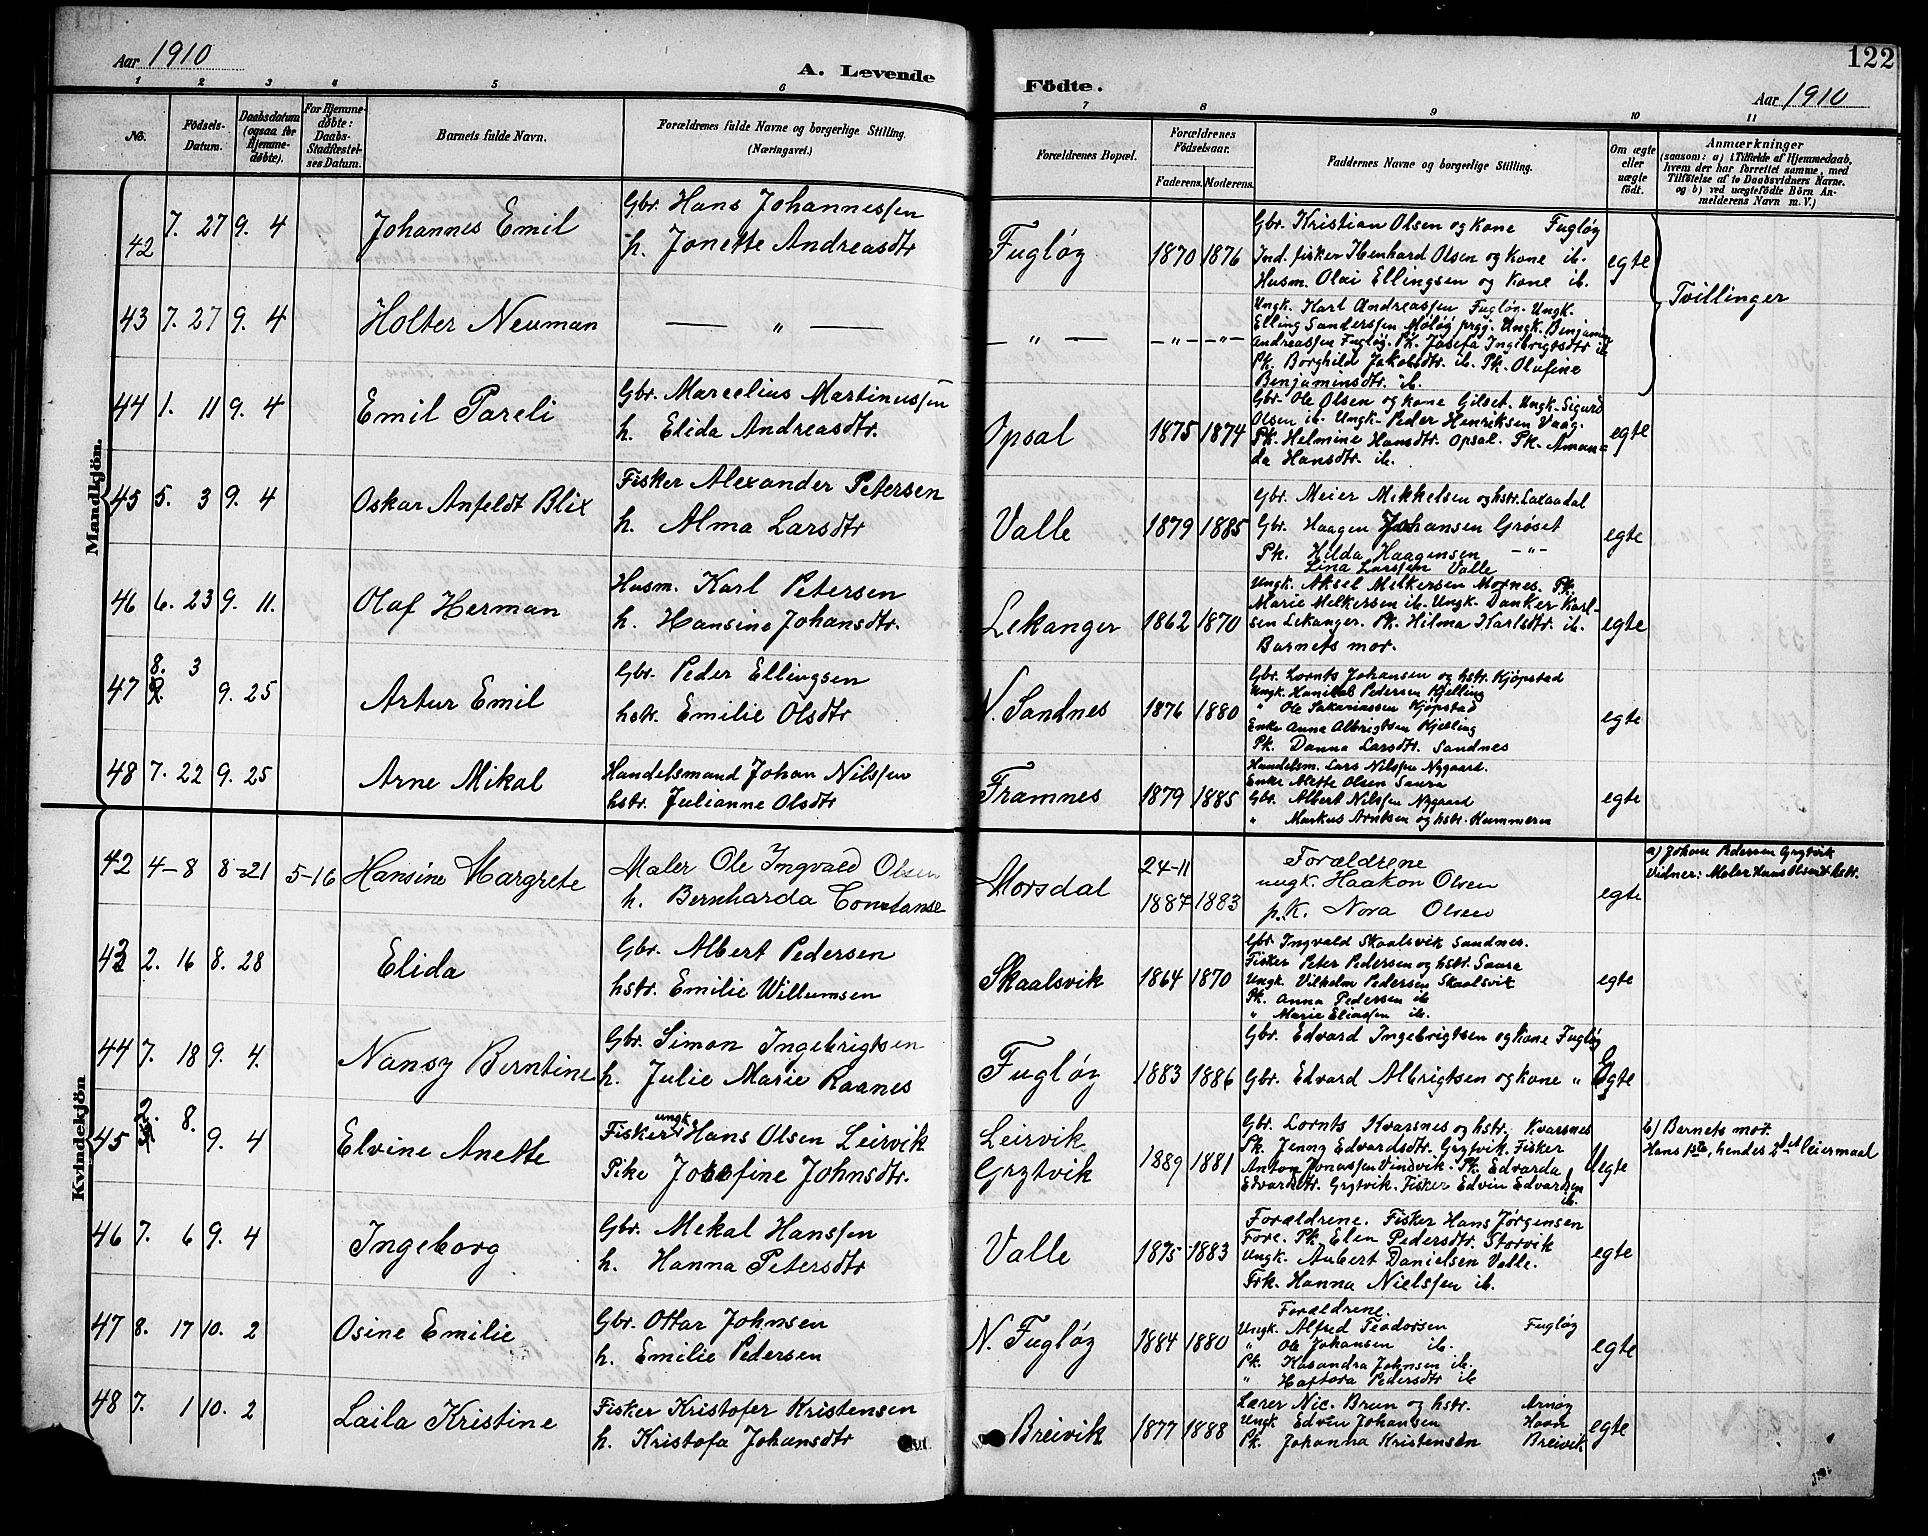 Aar 1910
A. Levende
Födte.
122
Aar 1910
1 2 3 4 5 6 7 8 9 10 11
No.
Födsels-
Datum.
Daabsdatum
(ogsaa for
Hjemme-
døbte).
For Hjemme-
døbte:
Daabs-
Stadfæstel-
ses Datum.
Barnets fulde Navn.
Forældrenes fulde Navne og borgerlige Stilling.
(Næringsvei.)
Forældrenes Bopæl.
Forældrenes
Födselsaar.
Faderens. Moderens.
Faddernes Navne og borgerlige Stilling.
Om ægte
eller
uægte
födt.
Anmærkninger
(saasom: a) i Tilfælde af Hjemmedaab,
hvem der har forrettet samme, med
Tilföielse af to Daabsvidners Navne.
og b) ved uægtefödte Börn An-
melderens Navn m. V.)
Mandkjön.
42 7. 27 9. 4 Johannes Emil
Gbr. Hans Johannessen
h. Jonette Andreasdtr
Fugløy 1870 1876
Gbr. Kristian Olsen og kone Fugløy
Ind. fisker Ibenhard Olsen og kone ib.
Husm. Olai Ellingsen og kone ib.
egte
Tvillinger
43 7. 27 9. 4 Holter Neuman
— " —
— " — — " — — " —
Ungk. Karl Andreassen Fugløy. Ungk.
Elling Sanderssen Meløy prgj. Ungk. Benjamin
Andreassen Fugløy. Pk. Josefa Ingebrigtsdtr ib
Pk. Borghild Jakobsdtr. ib. Pk. Olufine
Benjaminsdtr. ib.
44 1. 11 9. 4 Emil Pareli
Gbr. Marcelius Martinussen
h. Elida Andreasdtr.
Opsal 1875 1874
Gbr. Ole Olsen og kone Gilset. Ungk. Sigurd
Olsen ib. Ungk. Peder Henriksen Vaag.
Pk. Helmine Hansdtr. Opsal. Pk. Aman=
da Hansdtr. ib.
egte
45 5. 3 9. 4 Oskar Anfeldt Blix
Fisker Alexander Petersen
h. Alma Larsdtr
Valle 1879 1885
Gbr. Meier Mikkelsen og hstr. Laxaadal
Gbr. Haagen Johansen Grøset
Pk. Hilda Haagensen — " —
Lina Larssen Valle
egte
46 6. 23 9. 11. Olaf Herman
Husm. Karl Petersen
h. Hansine Johansdtr.
Lekanger 1862 1870
Ungk. Aksel Melkersen Mornes. Pk.
Marie Melkersen ib. Ungk. Danker Karl-
sen Lekanger. Pk. Hilma Karlsdtr. ib.
Barnets mor.
egte
47 8. 3 9. 25 Artur Emil
Gbr. Peder Ellingsen
hstr. Emilie Olsdtr
N. Sandnes 1876 1880
Gbr. Lornts Johansen og hstr. Kjøpstad
Ungk. Hanikel Pedersen Kjelling
" Ole Sakariassen Kjøpstad
Enke Anna Albrigtsen Kjelling
Pk. Danna Larsdtr. Sandnes
egte
48 7. 22 9. 25 Arne Mikal
Handelsmand Johan Nilssen
hstr. Julianne Olsdtr
Framnes 1879 1885
Handelsm. Lars Nilssen Nygaard.
Enke Mette Olsen Saura
Gbr. Albert Nilssen Nygaard
" Markus Arntsen og hstr. Hammern
egte
Kvindekjön
42 4-8 8-21 5-16 Hansine Margrete
Maler Ole Ingvald Olsen
h. Bernharda Constanse
Morsdal 24-11
1887 1883
Forældrene
ungk. Haakon Olsen
p.K. Nora Olsen
egte
a) Johan Pedersen Grytvik
Vidner: Maler Hans Olsen & hstr.
43 2. 16 8. 28 Elida
Gbr. Albert Pedersen
hstr. Emilie Willumsen
Skaalsvik 1864 1870
Gbr. Ingvald Skaalsvik Sandnes.
Fisker Peter Pedersen og hstr. Saura
Ungk. Vilhelm Pedersen Skaalsvik
Pk. Anna Pedersen ib
" Marie Eliassen ib.
egte
44 7. 18 9. 4. Nansy Berntine
Gbr. Simon Ingebrigtsen
h. Julie Marie Raanes
Fugløy 1883 1886
Gbr. Edvard Ingebrigtsen og kone Fugløy
Gbr. Edvard Albrigtsen og kone "
Egte
45 2. 8. 9. 4 Elvine Anette
Fisker ungk. Hans Olsen Leirvik
Pike Josefine Johnsdtr.
Leirvik
Grytvik 1889 1881
Gbr. Lornts Kvarsnes og hstr. Kvarsnes
Pk. Jenny Edvardsdtr. Grytvik. Fisker
Anton Jonassen Vindvik. Pk. Edvarda
Edvardsdtr. Grytvik. Fisker Edvin Edvardsen
ib.
Uegte
b) Barnets mor.
Hans 1ste, hendes 2det leiermaal
46 7. 6 9. 4 Ingeborg
Gbr. Mekal Hanssen
h. Hanna Petersdtr
Valle 1875 1883
Forældrene. Fisker Hans Jørgensen
Fore. Pk. Elen Pedersdtr. Storvik
Ungk. Aubert Danielsen Valle.
Frk. Hanna Nielssen ib.
egte
47 8. 17 10. 2 Osine Emilie
Gbr. Ottar Johnsen
h. Emilie Pedersen
N. Fugløy 1884 1880
Forældrene.
Ungk. Alfred Teodorsen Fugløy
" Ole Johansen ib.
Pk. Kasandra Johnsen ib.
" Haftora Pedersdtr ib
egte
48 7. 1 10. 2 Laila Kristine
Fisker Kristofer Kristensen
h. Kristofa Johansdtr
Breivik 1877 1888
Lærer Nic. Brun og hstr. Arnøy
Ungk Edvin Johansen Haar
Pk. Johanna Kristensen Breivik
egte